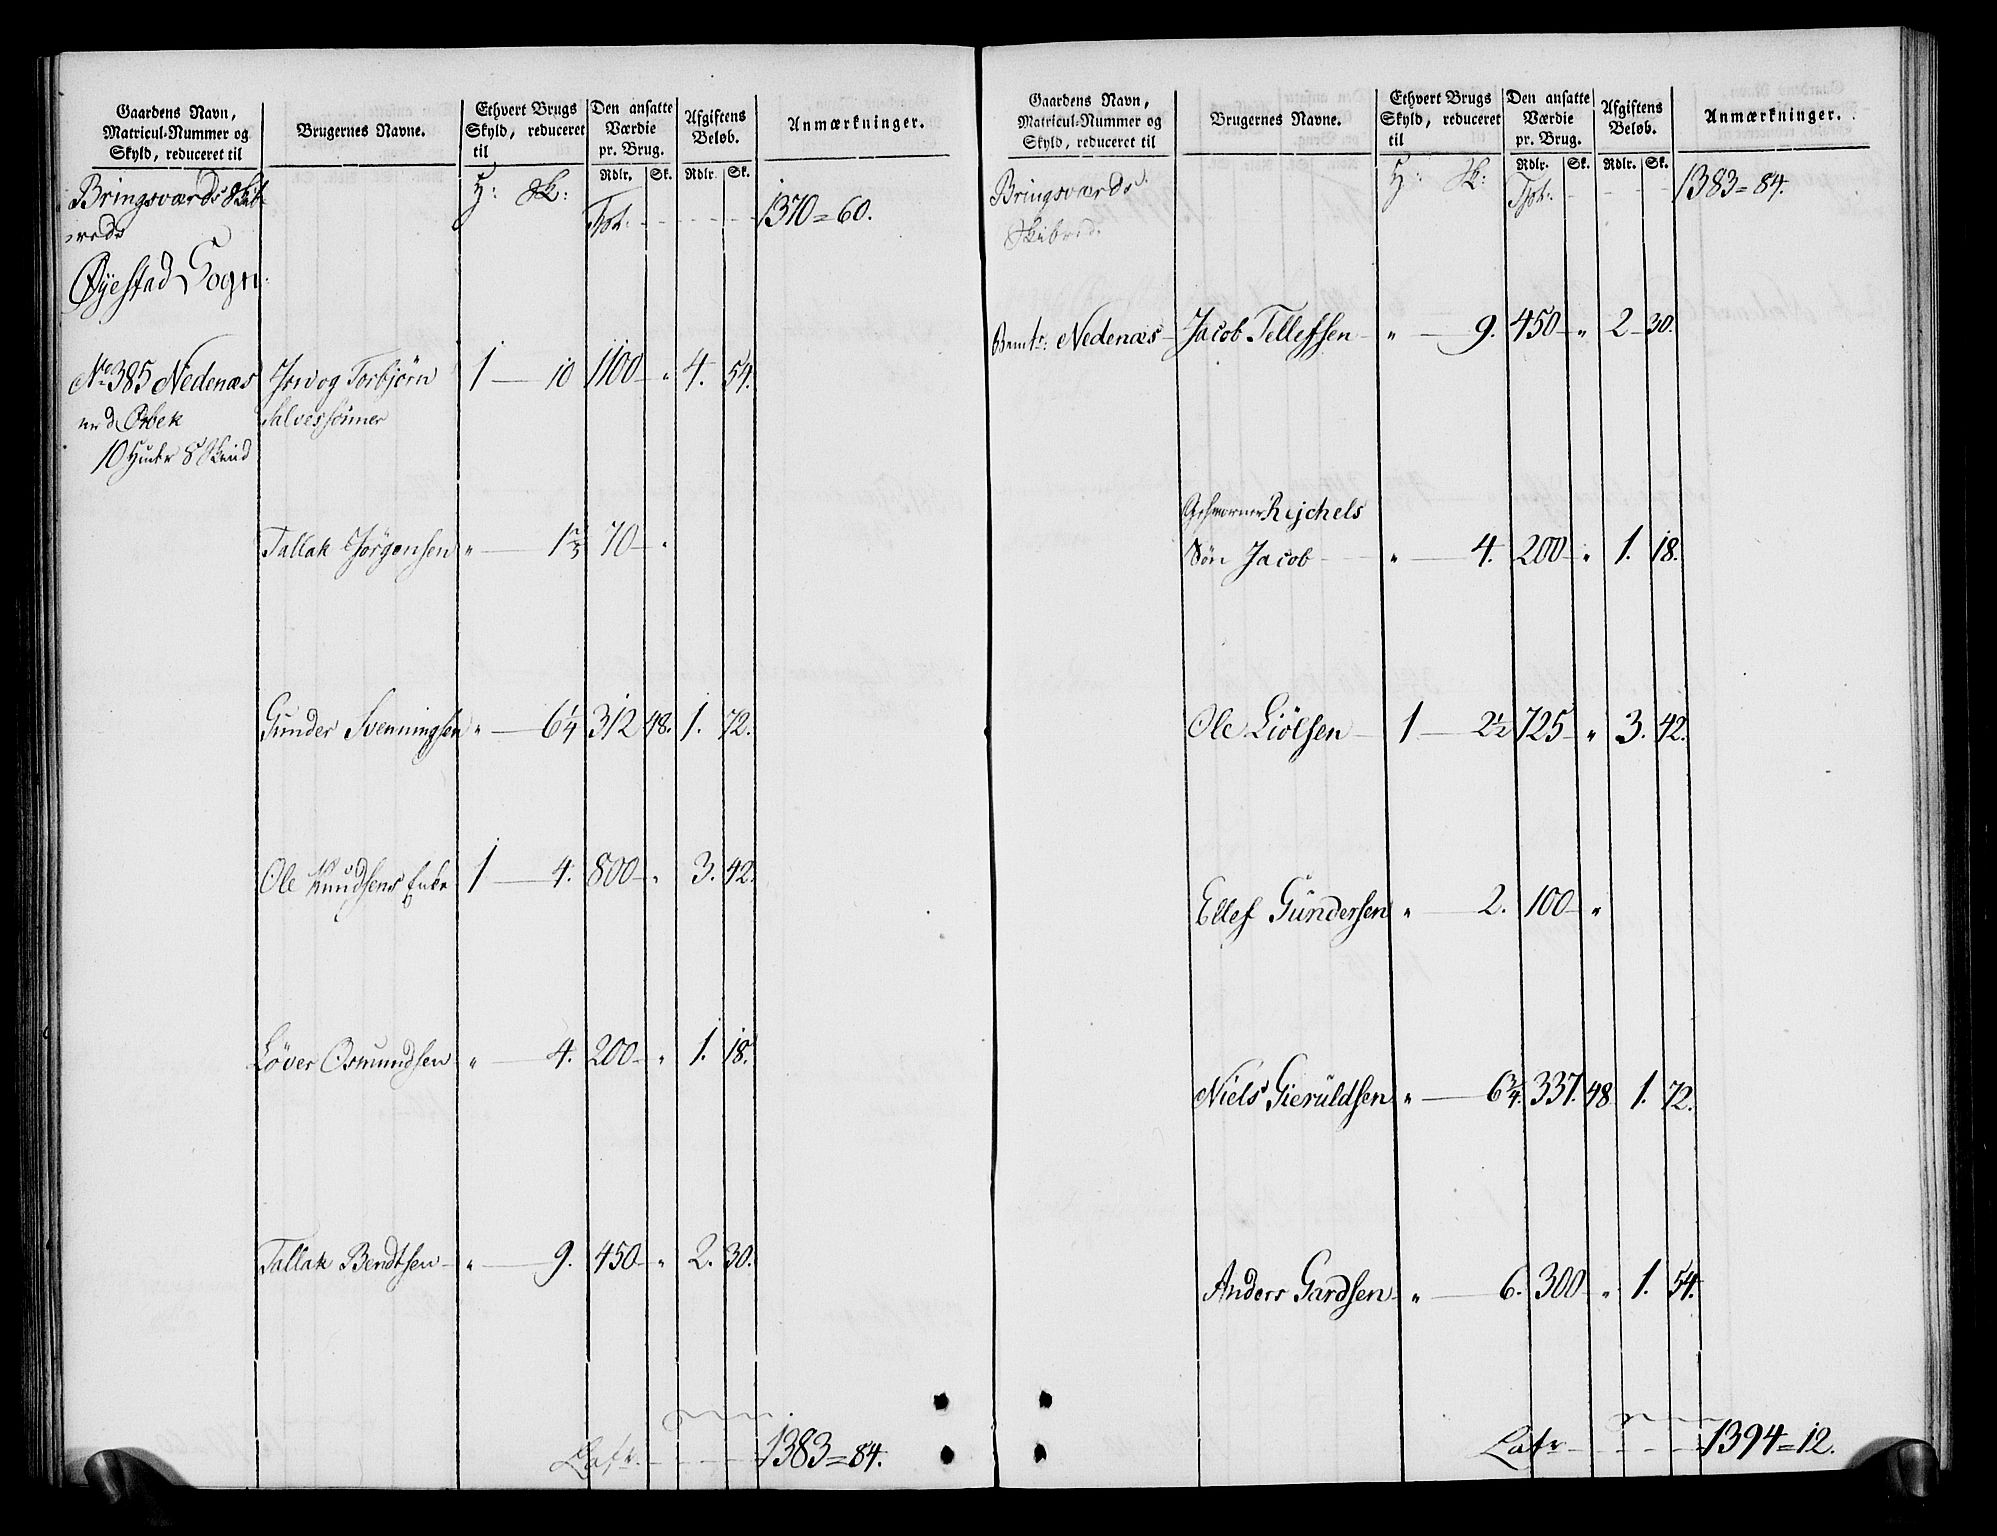 Gaardens Navn, Matricul-Nummer og Skyld, reduceret til
Brugernes Navne.
Ethvert Brugs Skyld, reduceret til
Den ansatte Værdie pr. Brug.
Afgiftens Beløb.
Anmærkninger.
Rdlr. Sk. Rdlr. Sk.
Bringsværds Skib-
reds H: Sk: Tpt: 1370=60.
Øyestad Sogn.
No 385 Nedenæs Torbjørn 1 — 10 1100 " 4. 54.
Salvessønner
10 Huder 8 Skind
Tallak Jørgensen " — 1 2/3 70 "
Gunder Svenningsen " — 6 1/4 312 48. 1. 72.
Ole Knudsens Enke 1 — 4. 800 " 3. 42.
Løver Osmundsen " — 4. 200 " 1. 18.
Tallak Bendtsen " — 9. 450 " 2. 30.
Latr. 1383=84.
Gaardens Navn, Matricul-Nummer og Skyld, reduceret til
Brugernes Navne.
Ethvert Brugs Skyld, reduceret til
Den ansatte Værdie pr. Brug.
Afgiftens Beløb.
Anmærkninger.
Rdlr. Sk. Rdlr. Sk.
Bringsværds H: Sk: Tpt: 1383=84.
Skibred.
Nedenæs Jacob Tellefsen " — 9. 450 " 2 30.
Rejchels
Søn Jacob " — 4. 200 " 1. 18.
Ole Liølsen 1 — 2 1/2 725 " 3. 42.
Ellef Gundersen " — 2. 100 "
Niels Gieruldsen " — 6 3/4 337. 48 1. 72.
Anders Gardsen " — 6. 300 " 1. 54.
Latr 1394=12.